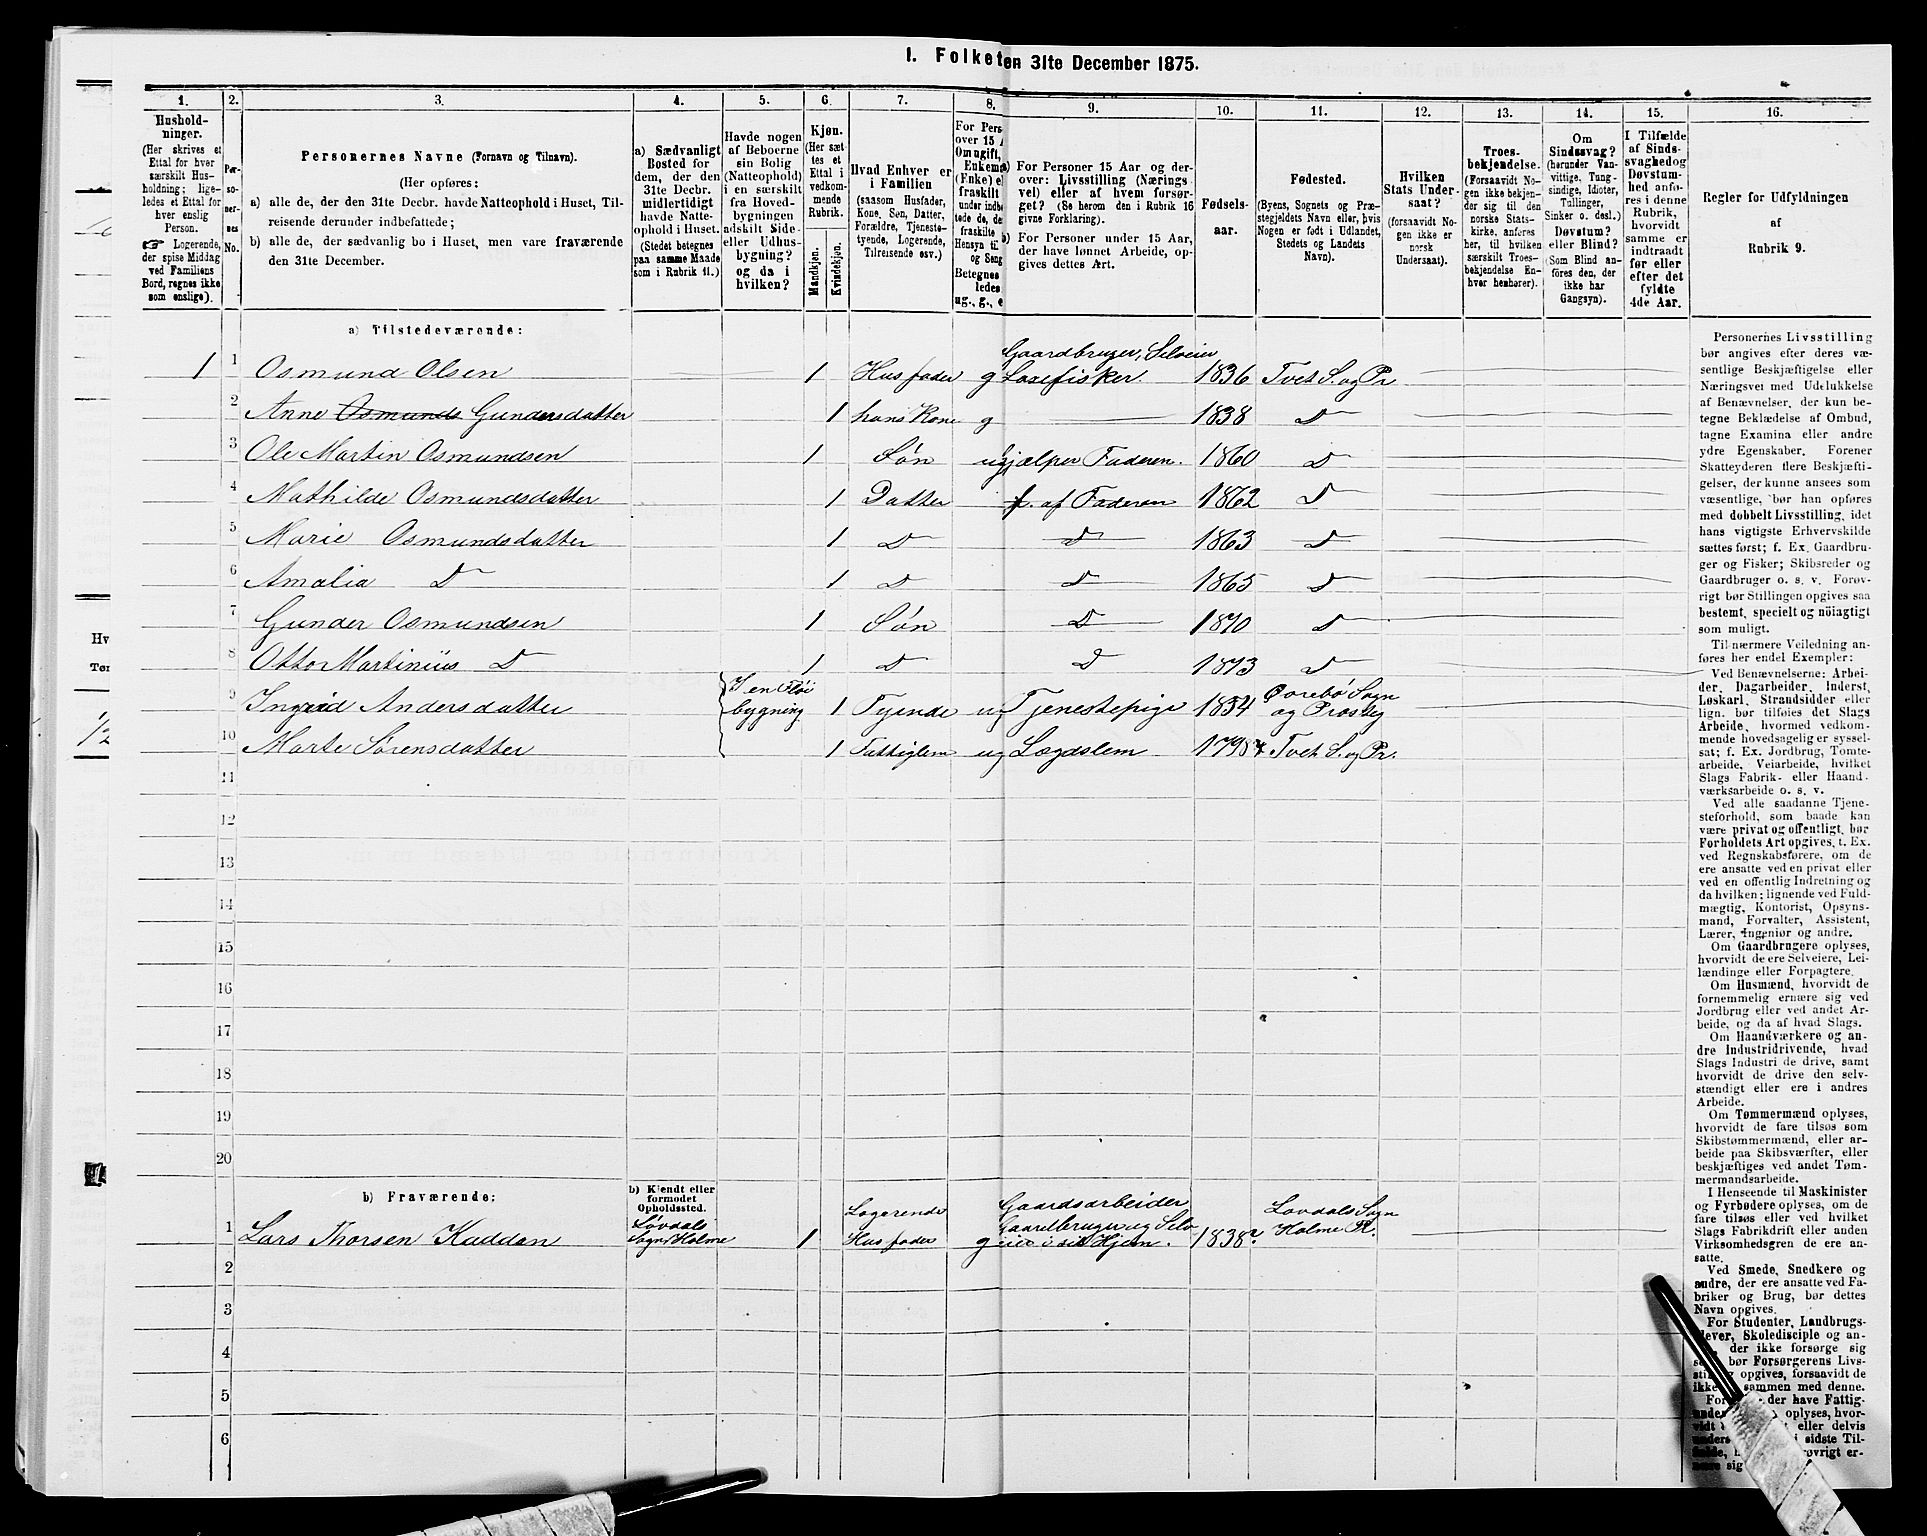 I. Folketen 31te December 1875.
1. 2. 3. 4. 5. 6. 7. 8. 9. 10. 11. 12. 13. 14. 15. 16.
Hushold-
ninger.
(Her skrives et
Ettal for hver
særskilt Hus-
holdning; lige-
ledes et Ettal for
hver enslig
Person.
☞ Logerende,
der spise Middag
ved Familiens
Bord, regnes ikke
som enslige).
Per-
so-
ner-
nes
No.
Personernes Navne (Fornavn og Tilnavn).
(Her opføres:
a) alle de, der den 31te Decbr. havde Natteophold i Huset, Til-
reisende derunder indbefattede;
b) alle de, der sædvanlig bo i Huset, men vare fraværende
den 31te December.
a) Sædvanligt
Bosted for
dem, der den
31te Decbr.
midlertidigt
havde Natte-
ophold i Huset.
(Stedet betegnes
paa samme Maade
som i Rubrik 11.)
Havde nogen
af Beboerne
sin Bolig
(Natteophold)
i en særskilt
fra Hoved-
bygningen
adskilt Side-
eller Udhus-
bygning?
og da i
hvilken?
Kjøn.
(Her sæt-
tes et
Ettal i
vedkom-
mende
Rubrik.
Mandkjøn.
Kvindekjøn.
Hvad Enhver er
i Familien
(saasom Husfader,
Kone, Søn, Datter,
Forældre, Tjeneste-
tyende, Logerende,
Tilreisende osv.)
For Pers
over 15 A
Om ugift,
Enkema
(Enke) el
fraskilt
under indbe
tede de, de
fraskilte
Hensyn til
og Seng
Betegnes
ledes
ug., g., e
a) For Personer 15 Aar og der-
over: Livsstilling (Nærings-
vei) eller af hvem forsør-
get? (Se herom den i Rubrik 16
givne Forklaring).
b) For Personer under 15 Aar,
der have lønnet Arbeide, op-
gives dettes Art.
Fødsels-
aar.
Fødested.
(Byens, Sognets og Præ-
stegjeldets Navn eller, hvis
Nogen er født i Udlandet,
Stedets og Landets
Navn).
Hvilken
Stats Under-
saat?
(forsaavidt No-
gen ikke er
norsk
Undersaat).
Troes-
bekjendelse.
(Forsaavidt No-
gen ikke bekjen-
der sig til den
norske Stats-
kirke, anføres
her, til hvilken
særskilt Troes-
bekjendelse En-
hver henhører).
Om
Sindssvag?
(herunder Van-
vittige, Tung-
sindige, Idioter,
Tullinger,
Sinker o. desl.)
Døvstum?
eller Blind?
(Som Blind an-
føres den, der
ikke har
Gangsyn).
I Tilfælde
af Sinds-
svaghed og
Døvstum-
hed anfø-
res i denne
Rubrik,
hvorvidt
samme er
indtraadt
før eller
efter det
fyldte
4de Aar.
Regler for Udfyldningen
af
Rubrik 9.
a) Tilstedeværende:
Gaardbruger, Selveier
1 1 Osmund Olsen 1 Husfader g Laxefisker 1836 Tvet S. og Pr
2 Anne Osmunds Gundersdatter 1 hans Kone g 1838 D
3 Ole Martin Osmundsen 1 Søn ug hjælper Faderen. 1860 D
4 Mathilde Osmundsdatter 1 Datter f. af Faderen 1862 D
5 Marie Osmundsdatter 1 D D 1863 D
6 Amalia D 1 D D 1865 D
7 Gunder Osmundsen 1 Søn D 1870 D
8 Otto Martinius D 1 D D 1873 D
I en Fløi
9 Ingrid Andersdatter bygning 1 Tyende ug Tjenestepige 1834 Sogn og Præstg
10 Marte Sørensdatter 1 Fattiglem ug Lægdslem 1798 Tvet S. og Pr.
11
12
13
14
15
16
17
18
19
20
b) Fraværende:
b) Kjendt eller
formodet
Opholdssted.
1 Lars Thorsen Kaddan Løvdals Sogn Holme 1 Logerende Husfader g Gaardsarbeider Gaardbruger og Selveier i sit Hjem. 1838? Lovdals Sogn Holme Pr.
2
3
4
5
6
Personernes Livsstilling
bør angives efter deres væ-
sentlige Beskjæftigelse eller
Næringsvei med Udelukkelse
af Benævnelser, der kun be-
tegne Beklædelse af Ombud,
tagne Examina eller andre
ydre Egenskaber. Forener
Skatteyderen flere Beskjæfti-
gelser, der kunne ansees som
væsentlige, bør han opføres
med dobbelt Livsstilling, idet
hans vigtigste Erhvervskilde
sættes først; f. Ex. Gaardbru-
ger og Fisker; Skibsreder og
Gaardbruger o. s. v. Forøv-
rigt bør Stillingen opgives saa
bestemt, specielt og nöiagtigt
som muligt.
Til nærmere Veiledning an-
føres her endel Exempler:
Ved Benævnelserne: Arbei-
der, Dagarbeider, Inderst,
Løskarl, Strandsidder eller
lign. bør tilføies det Slags
Arbeide, hvormed vedkom-
mende hovedsagelig er syssel-
sat; f. Ex. Jordbrug, Tomte-
arbeide, Veiarbeide, hvilket
Slags Fabrik- eller Haand-
værksarbeide o. s. v.
Ved alle saadanne Tjene-
steforhold, som baade kan
være privat og offentligt, bør
Forholdets Art opgives, t. Ex.
ved Regnskabsførere, om de
ere ansatte ved en privat eller
ved en offentlig Indretning og
da hvilken; lignende ved Fuld-
mægtig, Kontorist, Opsyns-
mand, Forvalter, Assistent,
Lærer, Ingeniør og andre.
Om Gaardbrugere oplyses,
hvorvidt de ere Selveiere, Lei-
lændinge eller Forpagtere.
Om Husmænd, hvorvidt de
fornemmelig ernære sig ved
Jordbrug eller ved andet Ar-
beide, og da af hvad Slags.
Om Haandværkere og an-
dre Industridrivende, hvad
Slags Industri de drive, samt
hvorvidt de drive den selv-
stændigt eller ere i andres
Arbeide.
Om Tømmermænd oplyses,
hvorvidt de fare tilsøs som
Skibstømmermænd, eller ar-
beide paa Skibsværfter, eller
beskjæftiges ved andet Tøm-
mermandsarbeide.
I Henseende til Maskinister
og Fyrbødere oplyses, om de
fare tilsøs eller ved hvilket
Slags Fabrikdrift eller anden
Virksomhedsgren de ere an-
satte.
Ved Smede, Snedkere og
andre, der ere ansatte ved Fa-
briker og Brug, bør dettes
Navn opgives.
For Studenter, Landbrugs-
elever, Skoledisciple og an-
der ikke forsørge sig
bør Forsørgerens Livs-
opgives, forsaavidt de
ikke sammen med denne.
For der have Fattig-
under oplyses, hvor-
vidt eller delvis
unders i sidste Til-
fælde, øvrigt er-
nære sig